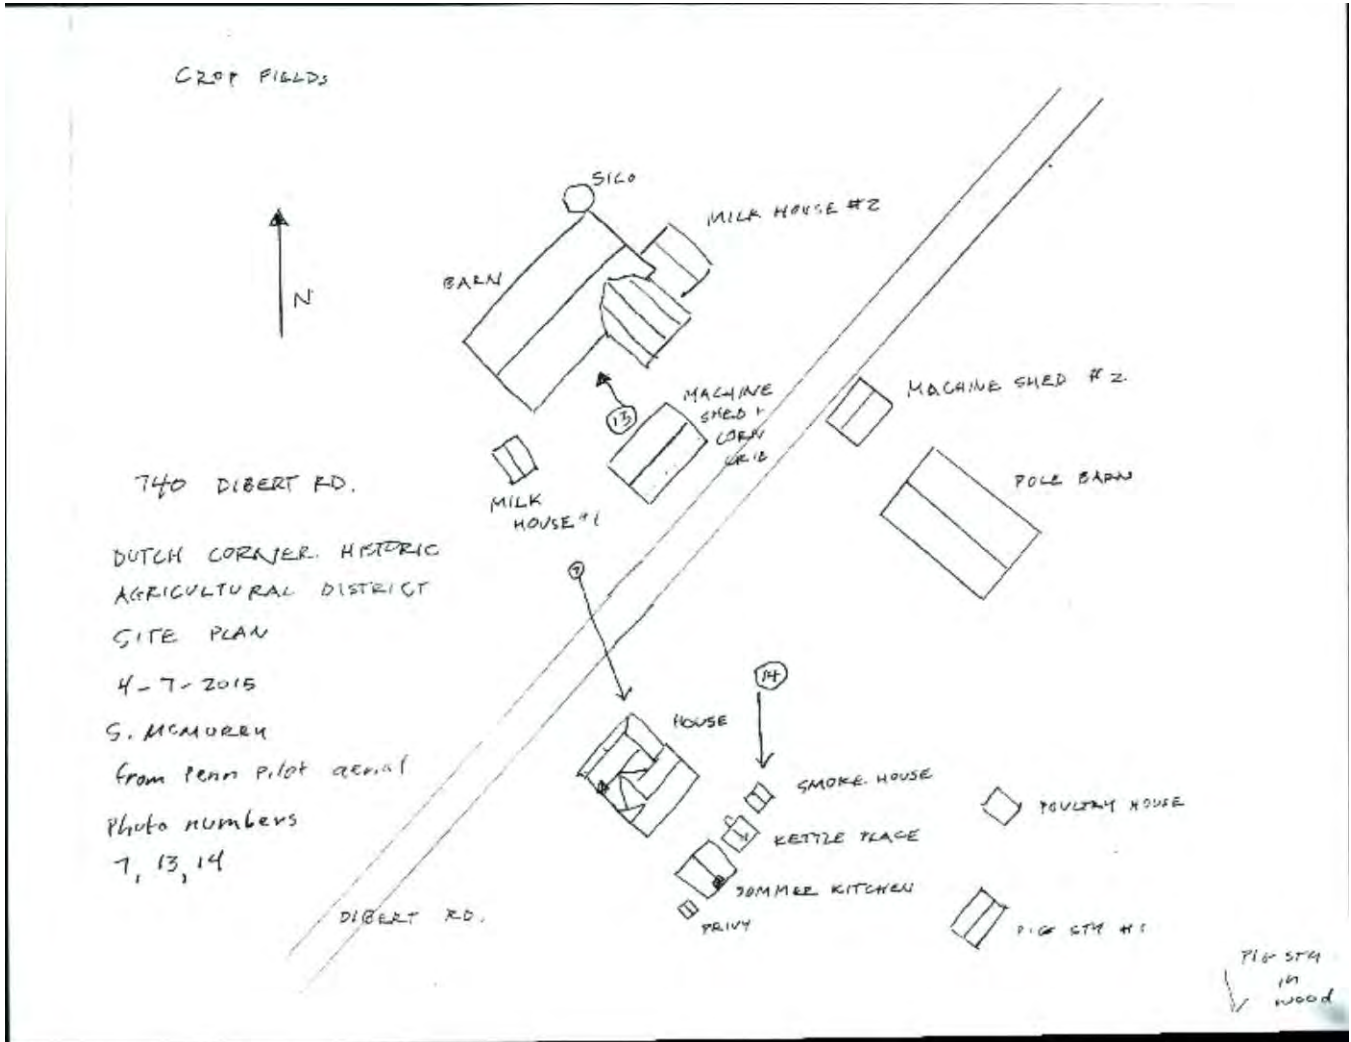 CROP FIELDS
SILO
MILK HOUSE #2
BARN
N
13
MACHINE
SHED &
CORN
CRIB
MACHINE SHED #2.
POLE BARN
MILK
HOUSE #1
740 DIBERT RD.
DUTCH CORNER HISTORIC
AGRICULTURAL DISTRICT
SITE PLAN
4-7-2015
S. MCMURRY
from Penn Pilot aerial
Photo numbers
7, 13, 14
7
14
HOUSE
SMOKE HOUSE
KETTLE PLACE
SUMMER KITCHEN
PRIVY
POULTRY HOUSE
PIG STY #1
DIBERT RD.
PIG STY
in
wood